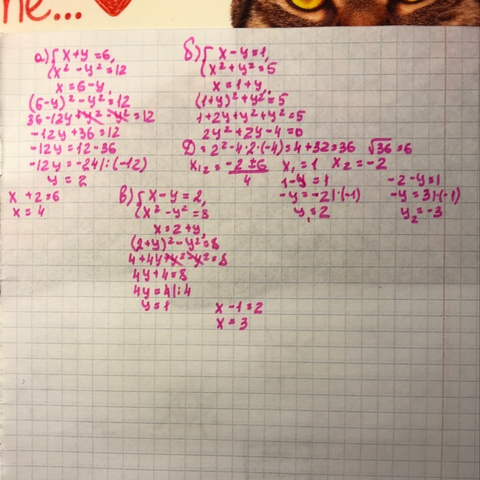 ne...
а) { x + y = 6,
{ x² - y² = 12
x = 6 - y
(6-y)² - y² = 12
36 - 12y + y² - y² = 12
-12y + 36 = 12
-12y = 12 - 36
-12y = -24 | : (-12)
y = 2
x + 2 = 6
x = 4
б) { x - y = 1,
{ x² + y² = 5
x = 1 + y,
(1+y)² + y² = 5
1 + 2y + y² + y² = 5
2y² + 2y - 4 = 0
D = 2² - 4·2·(-4) = 4 + 32 = 36 √36 = 6
x₁,₂ = (-2 ± 6)/4 x₁ = 1 x₂ = -2
1 - y = 1
-y = -2 | · (-1)
y₁ = 2
-2 - y = 1
-y = 3 | · (-1)
y₂ = -3
в) { x - y = 2,
{ x² - y² = 8
x = 2 + y,
(2+y)² - y² = 8
4 + 4y + y² - y² = 8
4y + 4 = 8
4y = 4 | : 4
y = 1
x - 1 = 2
x = 3